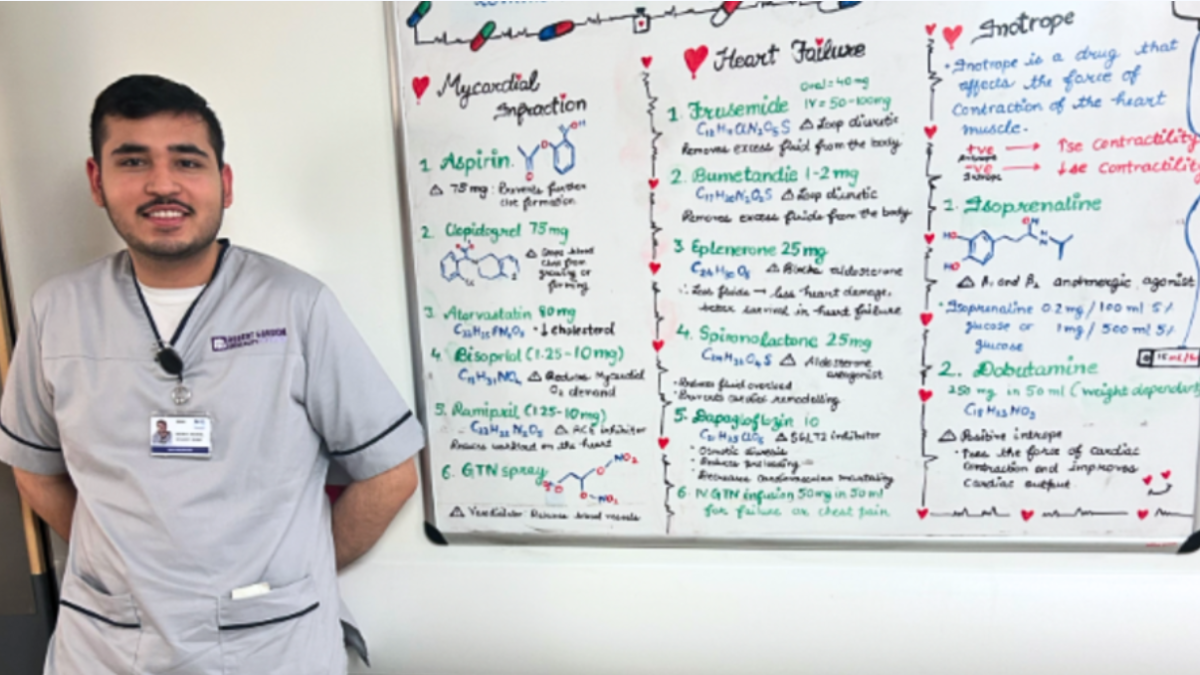 Mycardial
Infraction
1. Aspirin.
△ 75 mg: Prevents further
clot formation
2. Clopidogrel 75mg
△ Stops blood
clots from
growing or
forming
3. Atorvastatin 80mg
C33H35FN2O5 • ↓ cholesterol
4. Bisoprlol (1.25-10mg)
C18H31NO4 △ Reduces Mycardial
O2 demand
5. Ramipril (1.25-10mg)
C23H32N2O5 △ ACE inhibitor
Reduces workload on the heart
6. GTN spray
NO2
O
O-NO2
△ Vasodilator: Relaxes blood vessels
Heart Failure
Oral = 40mg
1. Frusemide IV = 50-100mg
C12H11ClN2O5S △ Loop diuretic
Removes excess fluid from the body
2. Bumetandie 1-2 mg
C17H20N2O5S △ Loop diuretic
Removes excess fluids from the body
3 Eplenerone 25 mg
C24H30O6 △ Blocks aldosterone
∴ Less fluids → less heart damage,
better survival in heart failure
4. Spironolactone 25mg
C24H32O4S △ Aldosterone
antagonist
• Reduces fluid overload
• Prevents cardiac remodelling
5. Dapagloflozin 10
C21H25ClO6 △ SGLT2 inhibitor
• Osmotic diuresis
• Reduces preloading
• Decreases cardiovascular mortality
6. IV GTN infusion 50mg in 50ml
for failure or chest pain
Inotrope
• Inotrope is a drug that
affects the force of
Contraction of the heart
muscle.
+ve Inotrope → ↑se contractility
-ve Inotrope → ↓se contractility
1. Isoprenaline
HO
HO
△ β1 and β2 andrenergic agonist
• Isoprenaline 0.2mg/100 ml 5%
glucose or 1mg/500 ml 5%
glucose
2. Dobutamine
250 mg in 50 ml (weight dependent
C18H23NO2
△ Positive intrope
• ↑ses the force of cardiac
contraction and improves
Cardiac output